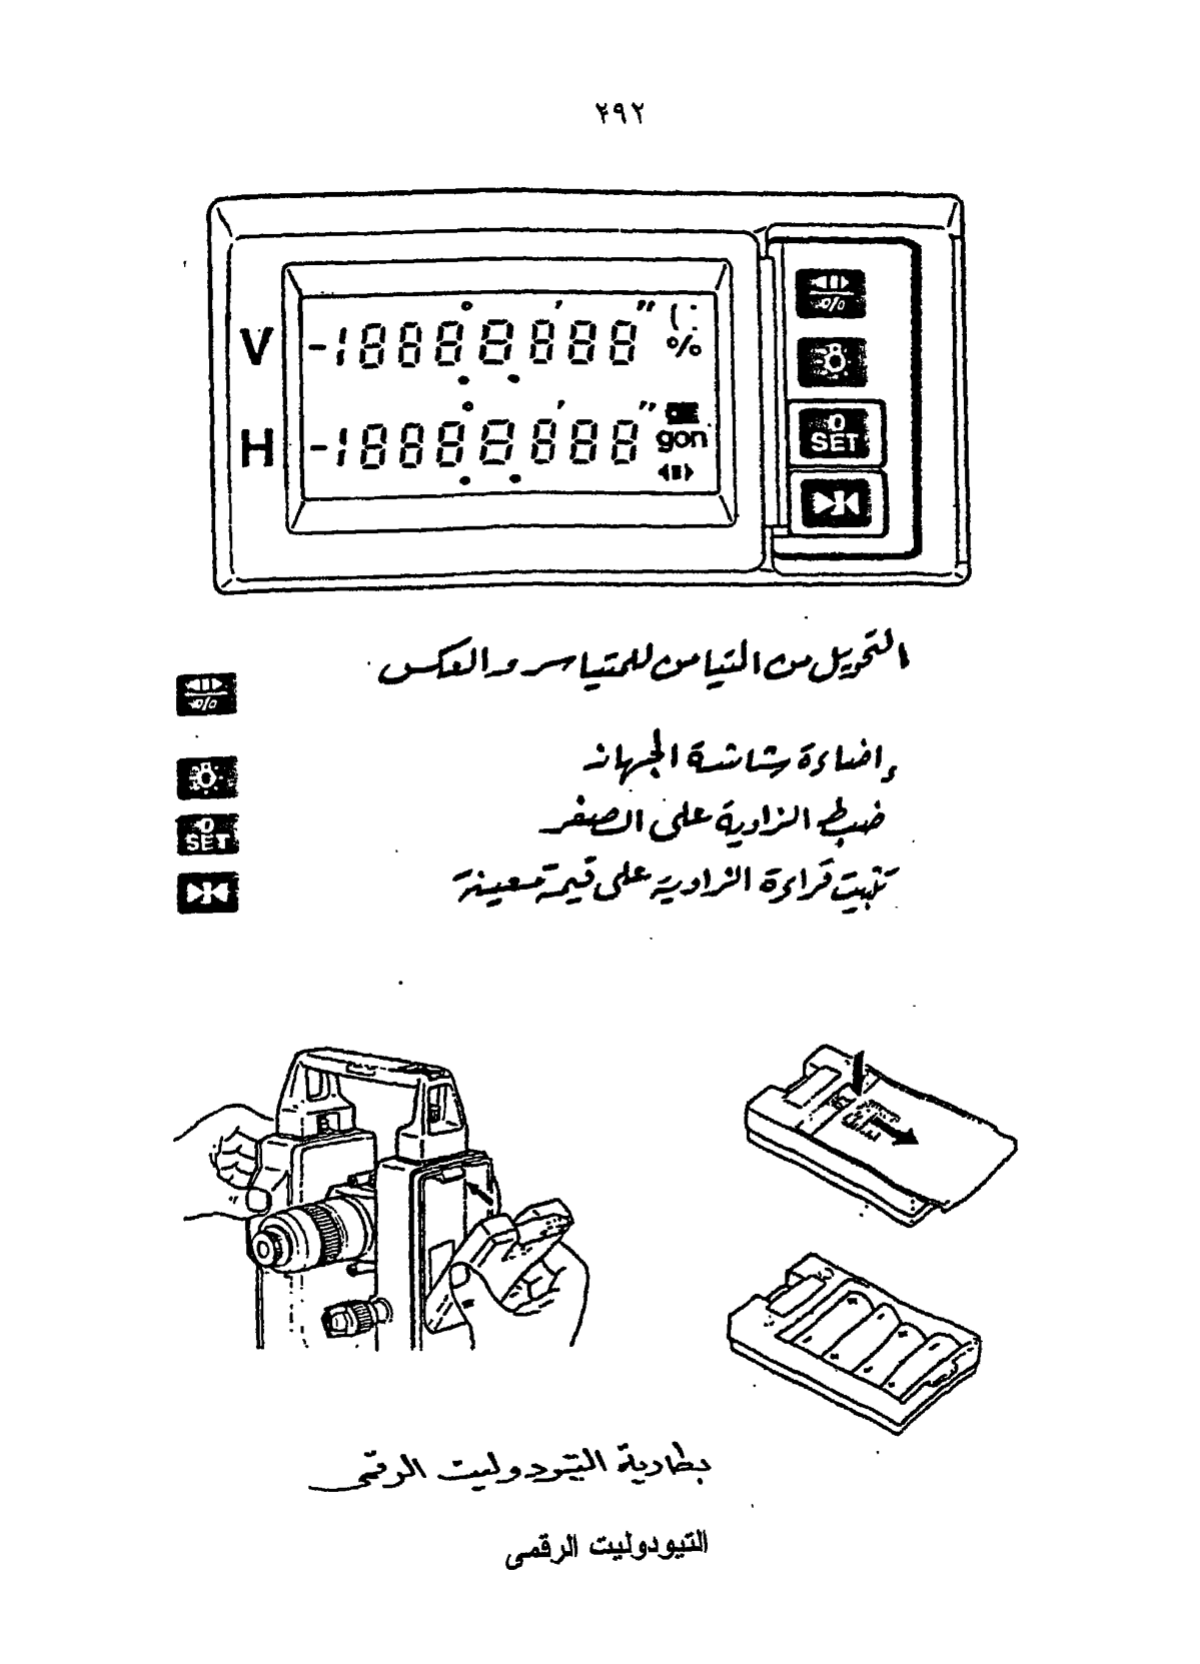 ٢٩٢
V -1888 8 888 ° ' " ( :
%
H -1888 8 888 ° ' "
gon
%
0
SET
التحويل من التيامن للمتياسر والعكس
%
إضاءة شاشة الجهاز
ضبط الزاوية على الصفر
0
SET
تثبيت قراءة الزاوية على قيمة معينة
بطارية التيودوليت الرقمى
التيودوليت الرقمى